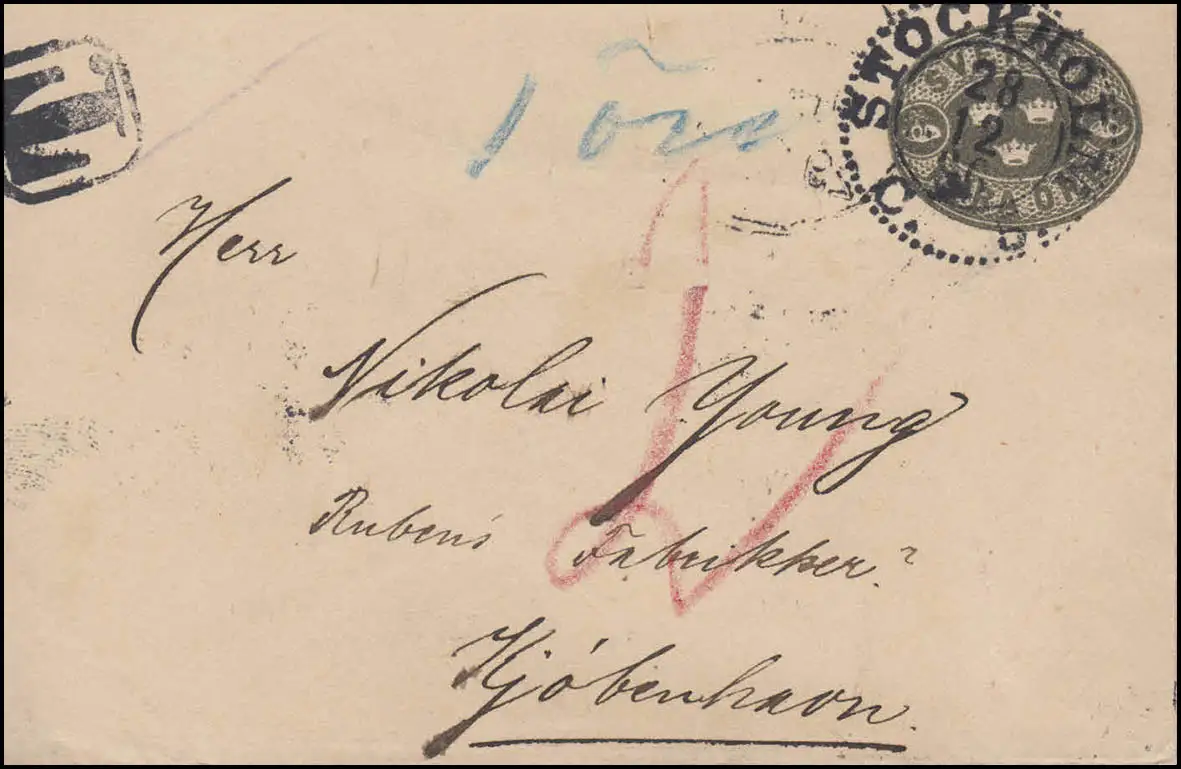 1 öre
STOCKHOLM
28
12
Herr
Nikolai Young
Ruben's Fabrikker.
Kjóbenhavn.